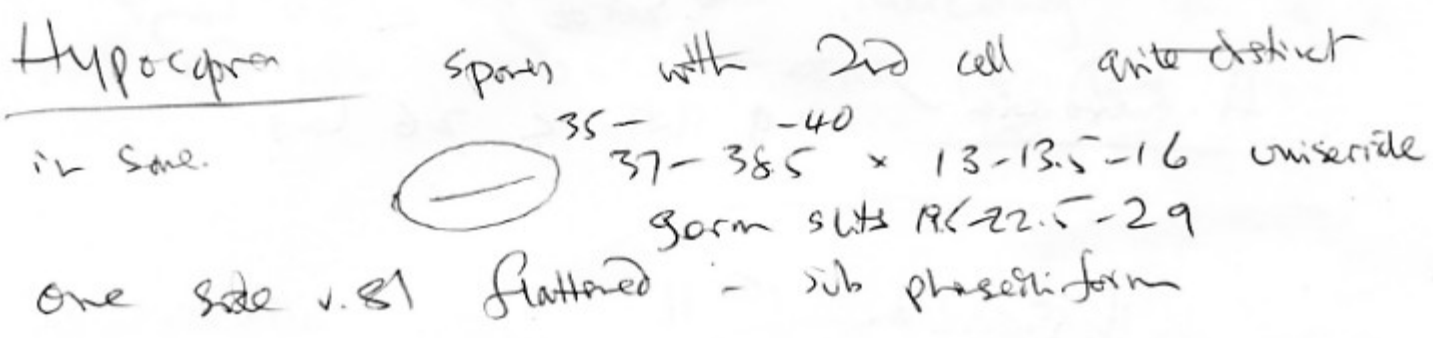 Hypocopra spores with 2nd cell quite distinct
in some.
35- -40
37-38.5 x 13-13.5-16 uniseriate
germ slits 19.5-22.5-29
one side v. sl flattened - sub phaseoliform